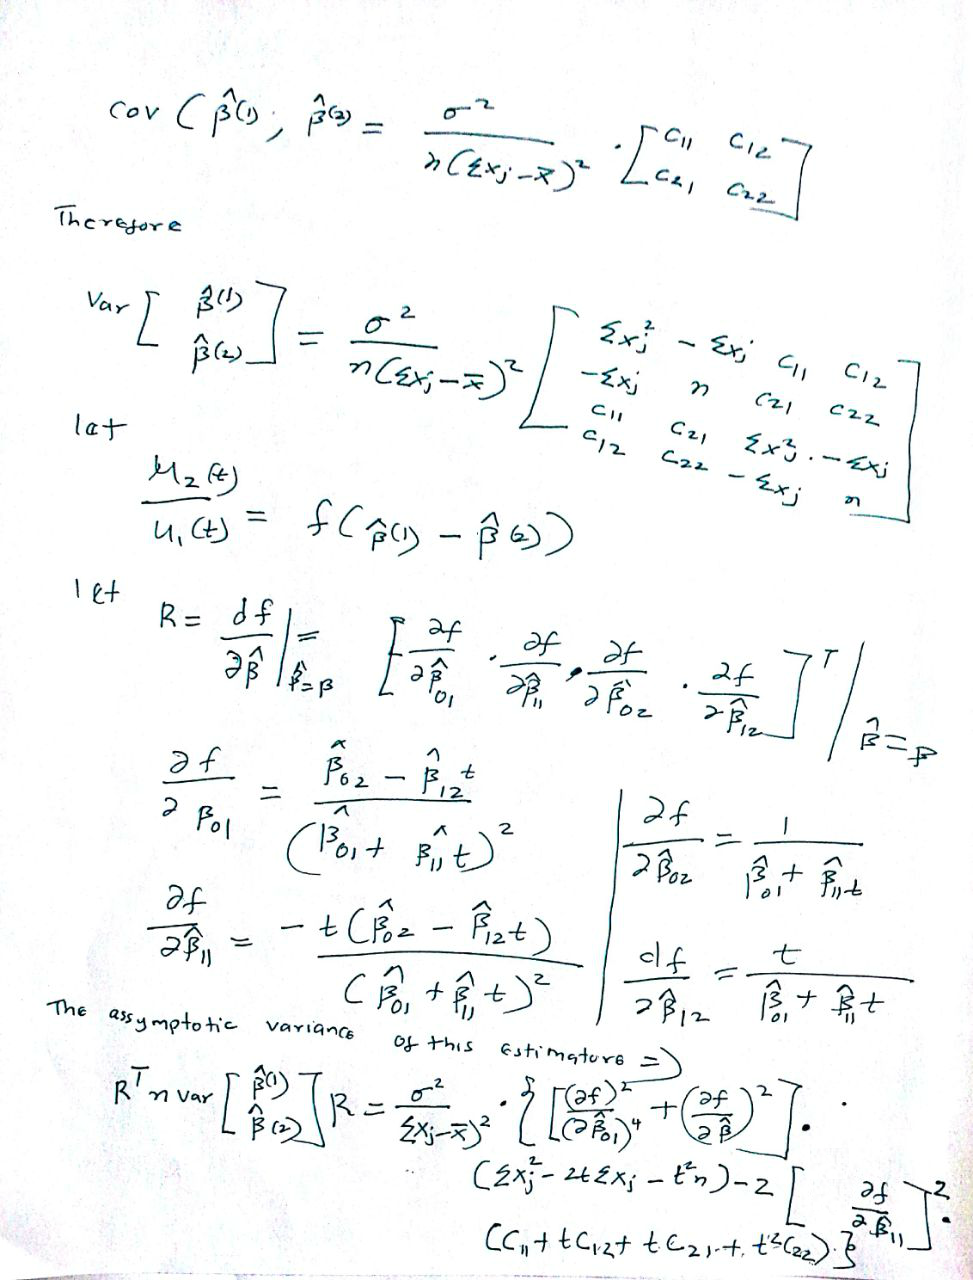 cov ( β̂⁽¹⁾, β̂⁽²⁾ = σ² / n(Σxⱼ-x̄)² · [ C₁₁ C₁₂
C₂₁ C₂₂ ]
Therefore
Var [ β̂⁽¹⁾ β̂⁽²⁾ ] = σ² / n(Σxⱼ-x̄)² [ Σxⱼ² - Σxⱼ C₁₁ C₁₂
-Σxⱼ n C₂₁ C₂₂
C₁₁ C₂₁ Σxⱼ² . -Σxⱼ
C₁₂ C₂₂ -Σxⱼ n ]
let
μ₂(t) / μ₁(t) = f( β̂⁽¹⁾ - β̂⁽²⁾ )
let
R = df/∂β̂ |β̂=β = [ ∂f/∂β̂₀₁ · ∂f/∂β̂₁₁ , ∂f/∂β̂₀₂ · ∂f/∂β̂₁₂ ]ᵀ / β̂=β
∂f/∂β₀₁ = β̂₀₂ - β̂₁₂t / (β̂₀₁ + β̂₁₁t)² | ∂f/∂β̂₀₂ = 1 / β̂₀₁ + β̂₁₁t
∂f/∂β̂₁₁ = -t(β̂₀₂ - β̂₁₂t) / (β̂₀₁ + β̂₁₁t)² | df/∂β̂₁₂ = t / β̂₀₁ + β̂₁₁t
The assymptotic variance of this Estimators ⇒
Rᵀ n var [ β̂⁽¹⁾ β̂⁽²⁾ ] R = σ² / Σxⱼ-x̄)² · { [ (∂f)² / (∂β̂₀₁)⁴ + (∂f/∂β̂)² ] .
(Σxⱼ² - 2tΣxⱼ - t²n) - 2 [ ∂f/∂β̂₁₁ ]² .
(C₁₁ + tC₁₂ + tC₂₁ + t²C₂₂) . }